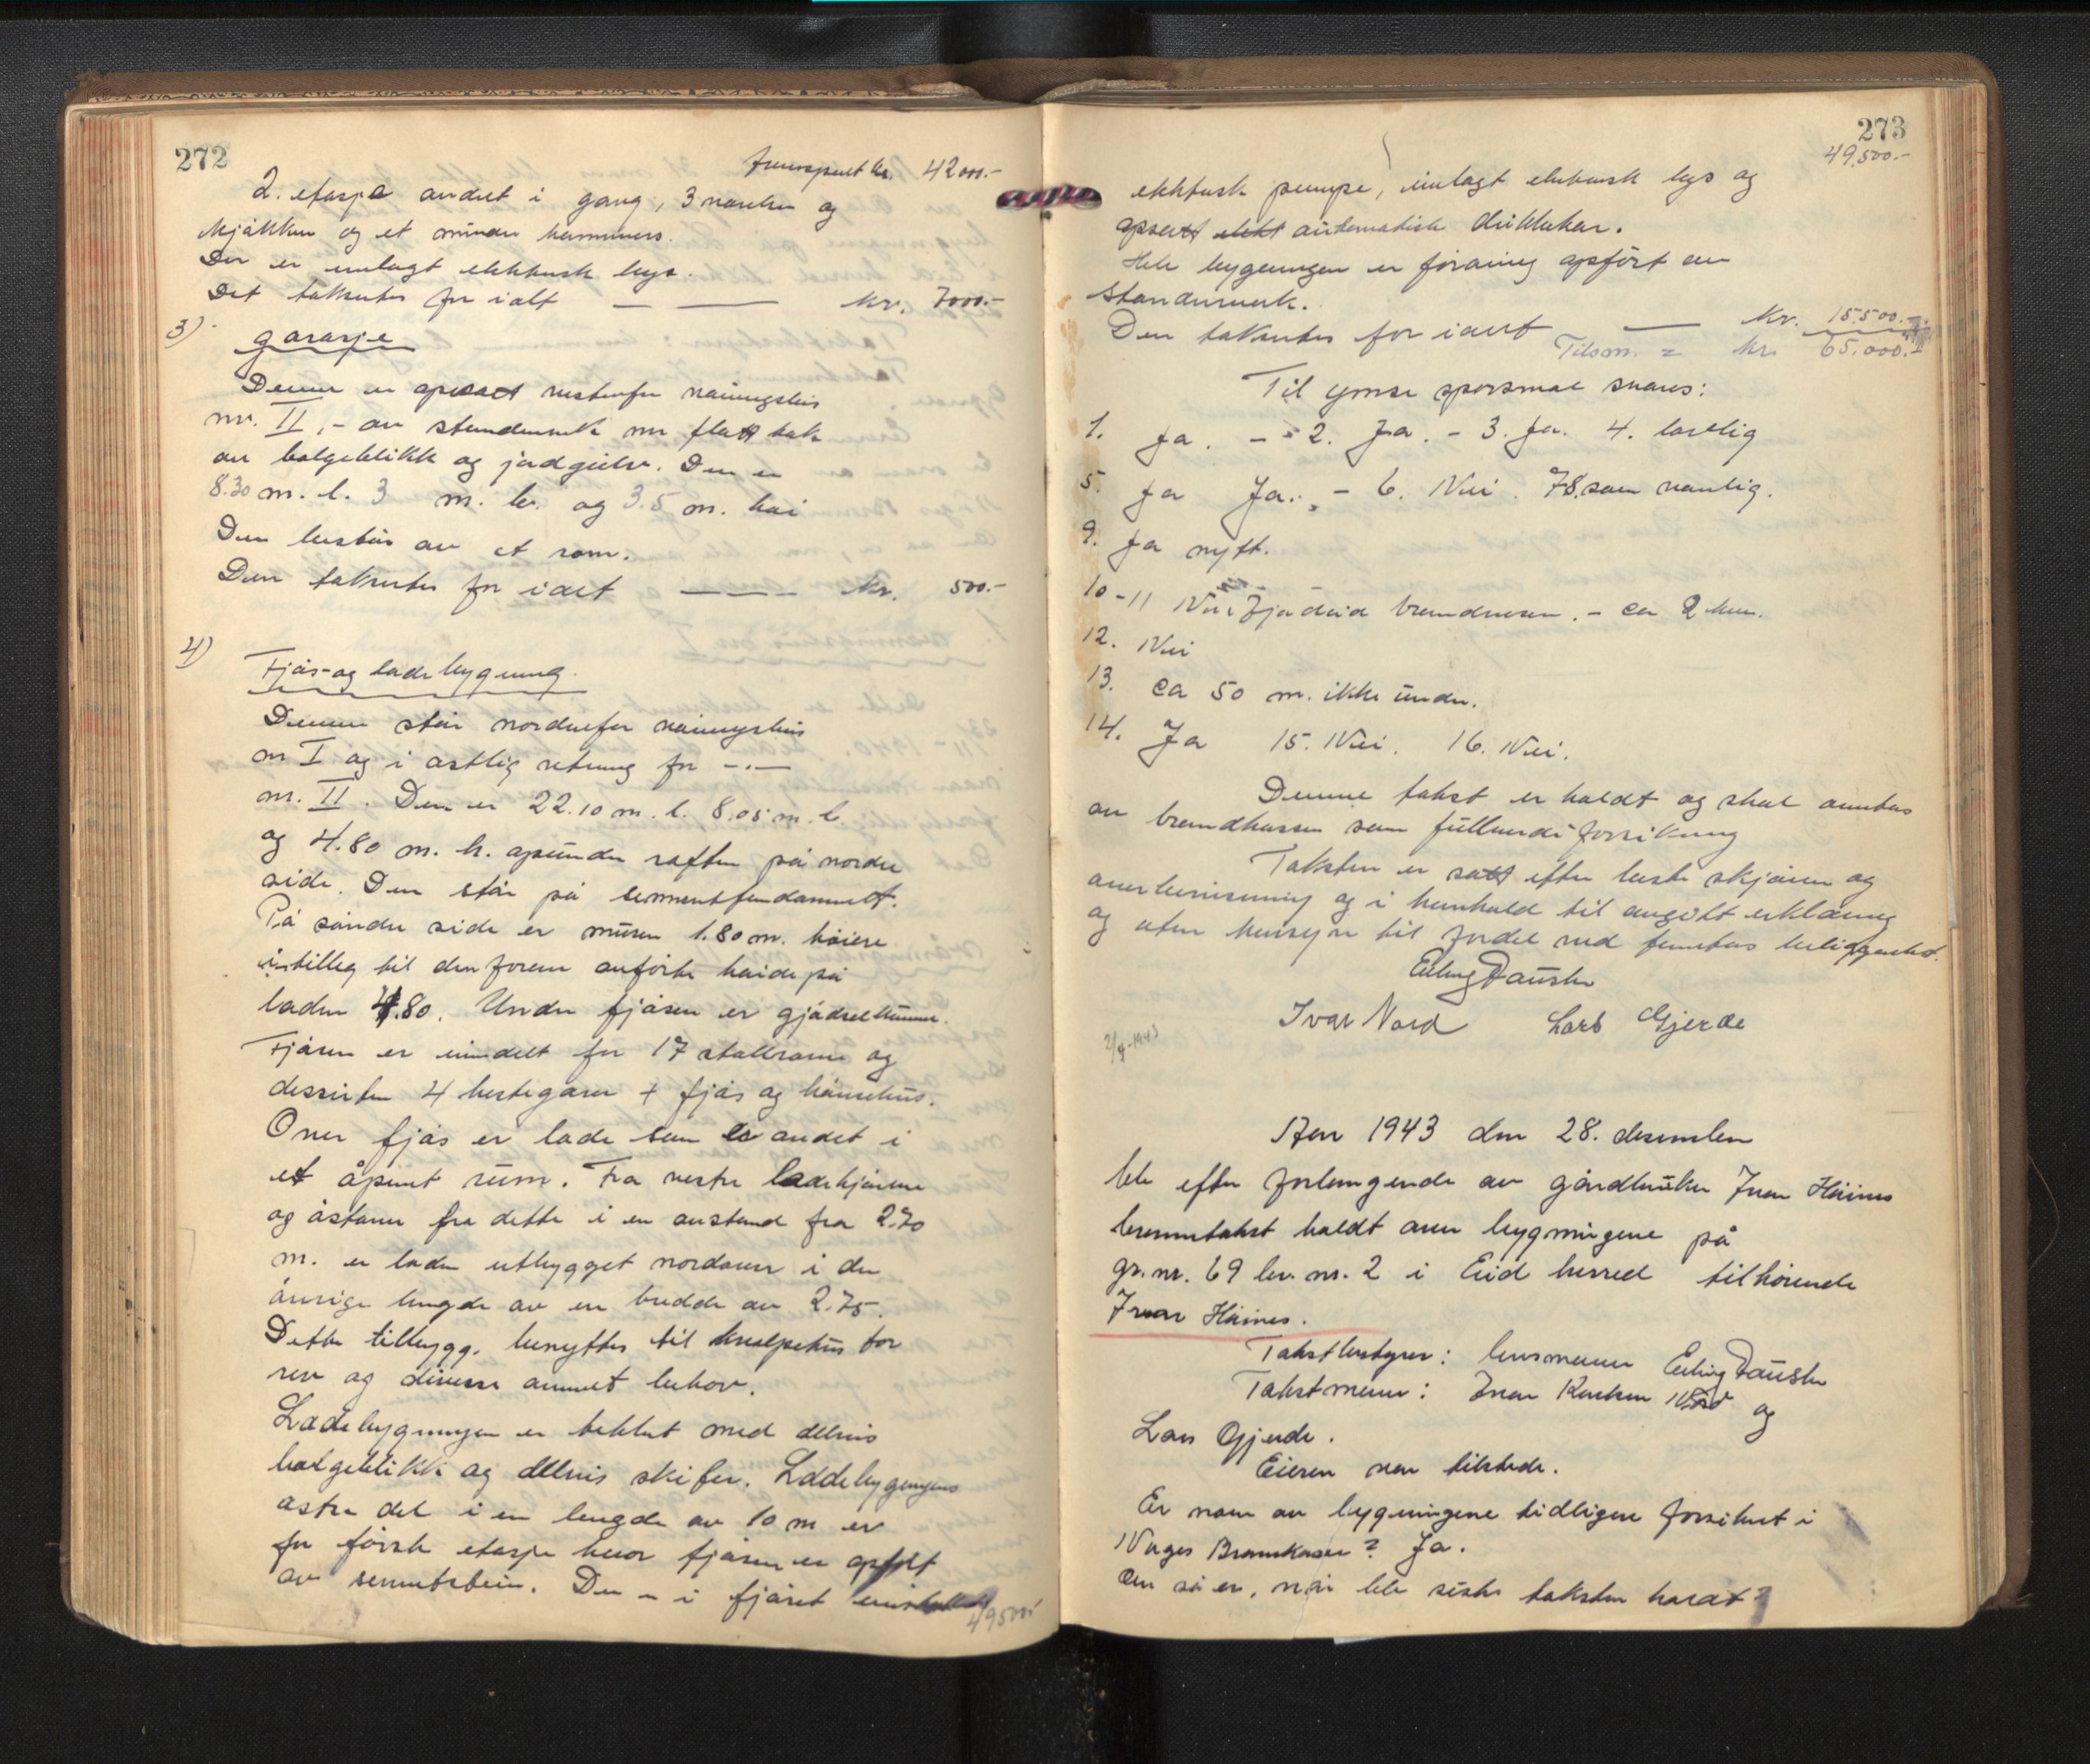 272
Transport kr. 42000.-
2. etasje andret i gang, 3 værelser og
kjøkken og et mindre kammers.
Der er innlagt elektrisk lys.
Det takseres for ialt — — kr. 7000.-
3) garasje
Denne er opsatt vestenfor våningshus
nr. II, - av stenderverk m flatt tak
av bølgeblikk og jordgulv. Den er
8.30 m. l. 3 m. br. og 3.5 m. høi
Den består av et rom.
Den takseres for ialt — — — kr. 500.-
4) Fjøs- og ladebygning.
Denne står nordenfor våningshus
nr I og i østlig retning for -.-
nr. II. Den er 22.10 m. l. 8.05 m. b.
og 4.80 m. h. opunder raften på nordre
side. Den står på sementfundament.
På søndre side er muren 1.80 m. høiere
i tillegg til den foran anførte høide på
laden 4.80. Under fjøsen er gjødselkummer.
Fjøsen er inndelt for 17 stallrom og
dessuten 4 hestegarer + fjøs og hønsehus.
Over fjøs er lade som er andet i
et åpent rum. Fra vestre ladehjørne
og østover fra dette i en avstand fra 2.70
m. er laden utbygget nordover i den
øvrige lengde av en bredde av 2.75.
Dette tilbygg. benyttes til for
rev og diverse annet behov.
Ladebygningen er tekket med delvis
bølgeblikk og delvis skifer. Ladebygningens
østre del i en lengde av 10 m er
for første etasje hvor fjøsen er opført
av sementstein. Den - i fjøset
49500.-
273
49.500.-
elektrisk pumpe, innlagt elektrisk lys og
opsatt elekt automatisk drikkekar.
Hele bygningen er forøvrig opført av
stenderverk.
Den takseres for ialt — kr. 15.500.-
Tilsm. = kr. 65.000.-
Til ymse spørsmål svares:
1. Ja. - 2. Ja. - 3. Ja. 4. lovlig
5. Ja Ja. - 6. Nei. 78. som vanlig.
9. Ja nytt.
10-11 Nei Nordfjordeid brandvesen. - ca 2 km.
12. Nei
13. ca 50 m. ikke under.
14. Ja 15. Nei. 16. Nei.
Denne takst er holdt og skal anntas
av brandkassen som fullverdiforsikring
Taksten er satt efter beste skjønn og
overbevisning og i henhold til avgitt erklæring
og uten hensyn til fordel ved tomtens beliggenhet.
Erling Dausler
Ivar Nord Lars Gjerde
2/9-1943
År 1943 den 28. desember
ble efter forlangende av gårdbruker Ivar Høines
branntakst holdt over bygningene på
gr. nr. 69 br. nr. 2 i Eid herred tilhørende
Ivar Høines.
Takstbestyrer: lensmann Erling Dausler
Takstmenn: Ivar Karlsen Nord og
Lars Gjerde.
Eieren var tilstede.
Er noen av bygningene tidligere forsikret i
Norges Brannkasse? Ja.
Om så er, når ble siste taksten holdt?